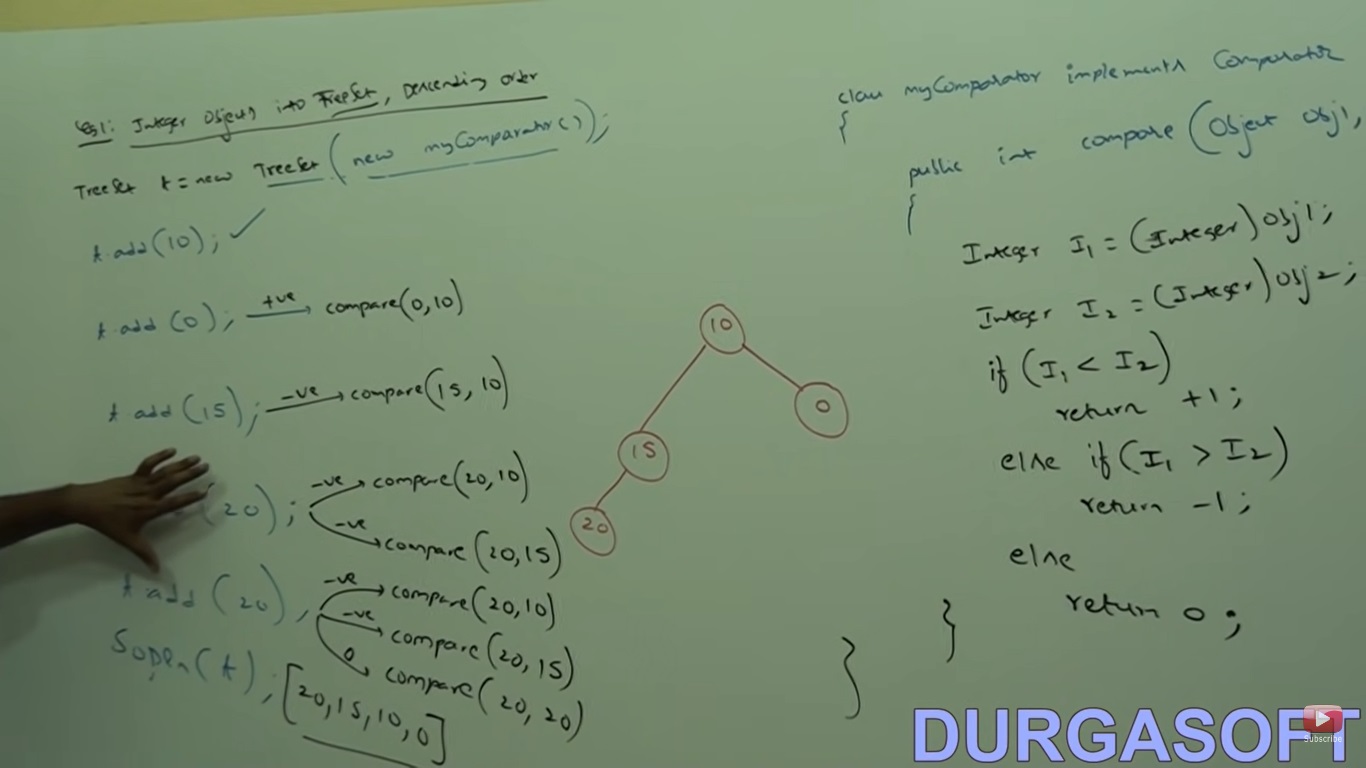 Eg1: Integer Objects into TreeSet, Descending order
TreeSet t = new TreeSet(new myComparator());
t.add(10); ✓
t.add(0); +ve → compare(0,10)
t.add(15); -ve → compare(15, 10)
(20); -ve → compare(20,10)
-ve → compare(20,15)
t.add(20); -ve → compare(20,10)
-ve → compare(20,15)
0 → compare(20, 20)
Sopln(t); [20,15,10,0]
10
0
15
20
class myComparator implements Comparator
{
public int compare(Object obj1,
{
Integer I1 = (Integer)obj1;
Integer I2 = (Integer)obj2;
if (I1 < I2)
return +1;
else if (I1 > I2)
return -1;
else
return 0;
}
}
DURGASOFT
Subscribe